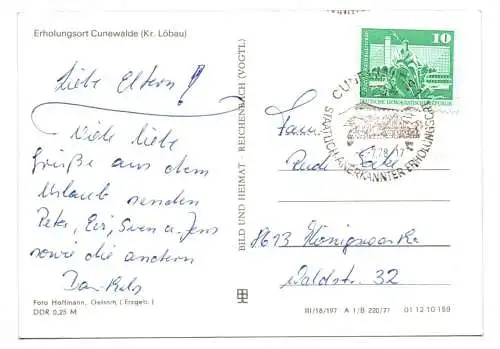 Erholungsort Cunewalde (Kr. Löbau)
Liebe Eltern!
Viele liebe
Grüße aus dem
Urlaub senden
Peter, Evi, Sven u. Jens
sowie die andern
Foto Hoffmann, Oelsnitz (Erzgeb.)
DDR 0,25 M
BILD UND HEIMAT · REICHENBACH (VOGTL)
10
DEUTSCHE DEMOKRATISCHE REPUBLIK
STAATLICH ANERKANNTER ERHOLUNGSORT
Fam.
Rudi
8613 Königswartha
Waldstr. 32
III/18/197 A 1/B 220/77 01 12 10 159